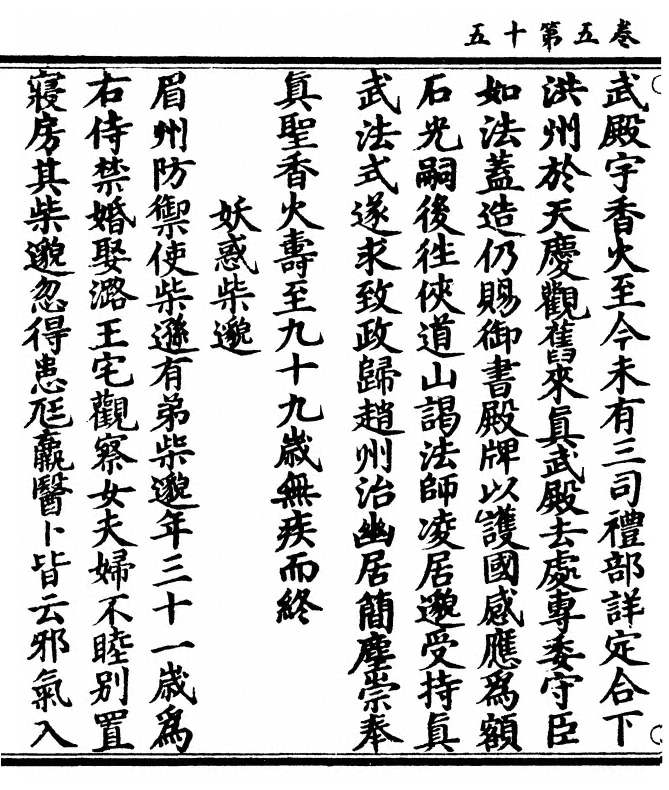 卷五第十五
武殿宇香火至今未有三司禮部詳定合下
洪州於天慶觀舊來真武殿去處專委守臣
如法蓋造仍賜御書殿牌以護國感應為額
石光嗣後往俠道山謁法師凌居邈受持真
武法式遂求致政歸趙州治幽居簡塵崇奉
真聖香火壽至九十九歲無疾而終
妖惑柴邈
眉州防禦使柴遜有弟柴邈年三十一歲為
右侍禁婚娶潞王宅觀察女夫婦不睦別置
寢房其柴邈忽得患尫羸醫卜皆云邪氣入